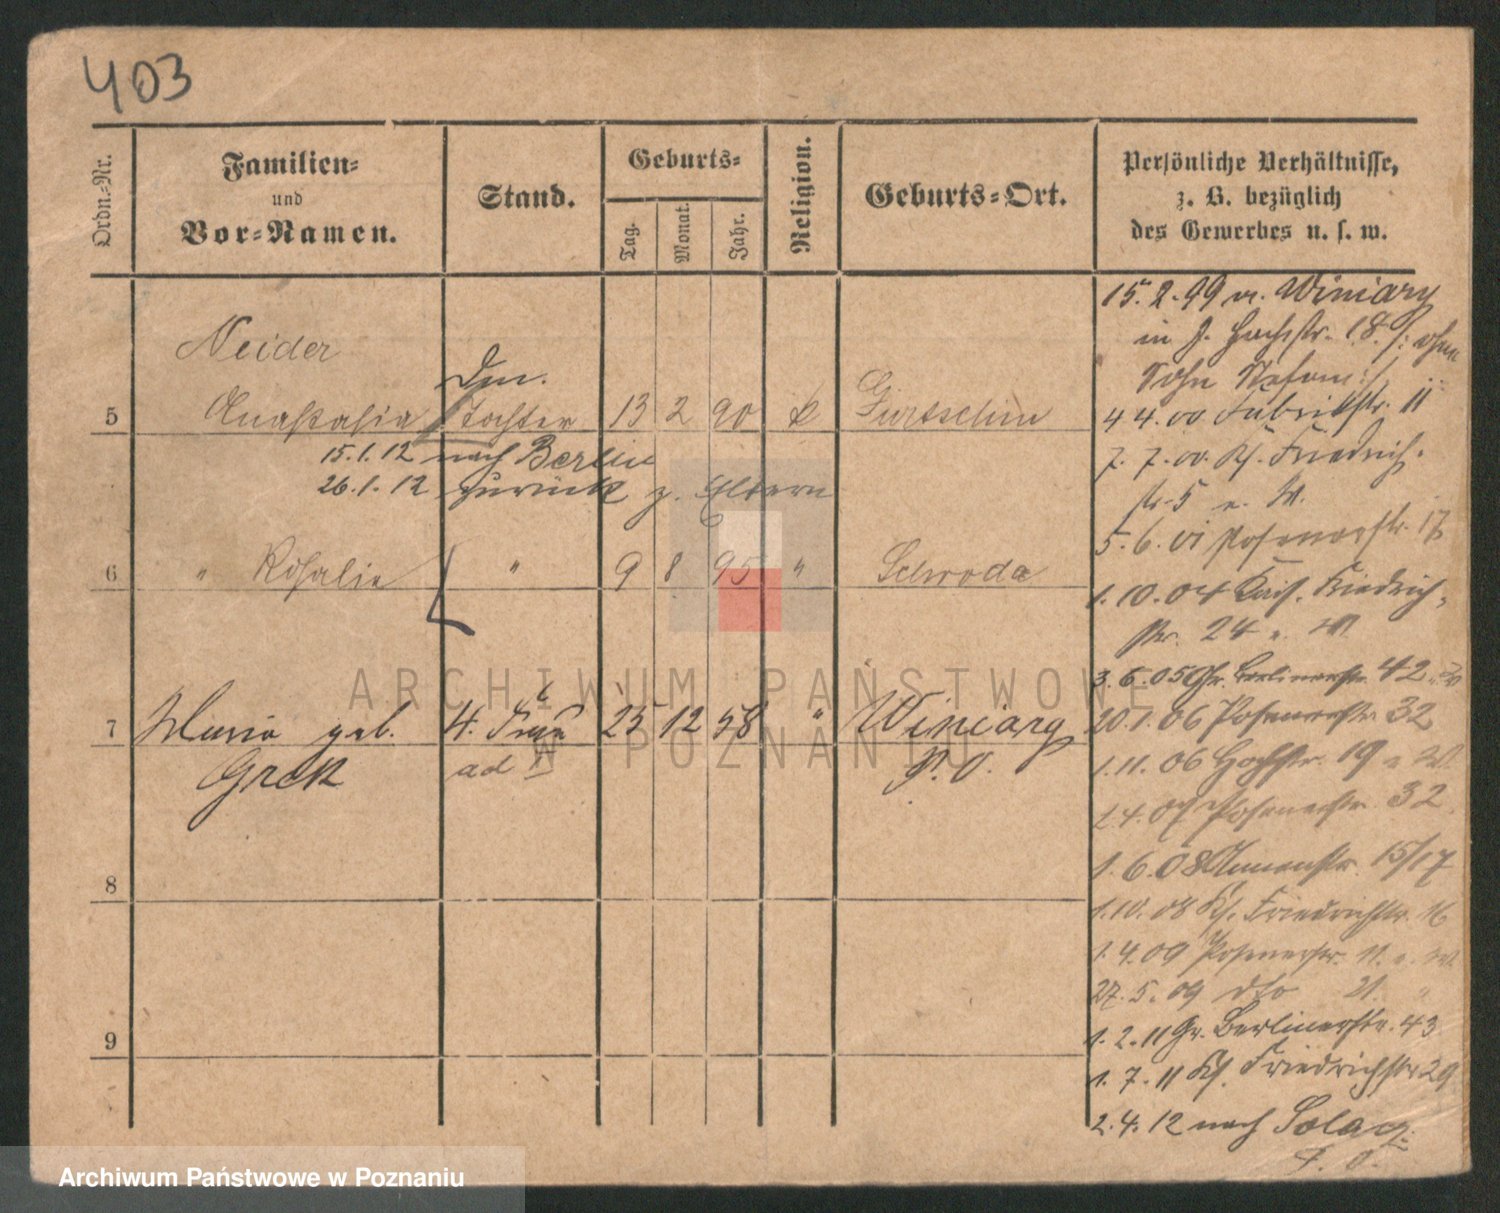 403
Ordn.-Nr.
Familien-
und
Vor-Namen.
Stand.
Geburts-
Tag.
Monat.
Jahr.
Religion.
Geburts-Ort.
Persönliche Verhältnisse,
z. B. bezüglich
des Gewerbes u. s. w.
Neider
5 Anastasia Tochter 13 2 90 k
15.1.12 nach Berlin
26.1.12 zurück z. Eltern
6 " Rosalie " 9 8 95 " Schroda
7 Maria geb. Frau 25 12 58 " Winiary
ad P. O.
8
9
15.2.99 v. Winiary
in J. 18. /: ohne
Sohn Stefan :/
4 4.00 Fabrikstr. 11
7.7.00. Ks. Friedrich-
str. 5
5.6.01 Posenerstr. 17
1.10.04 Kais. Friedrich-
str. 24
3.6.05 Gr. Berlinerstr. 42
20.1.06 Posenerstr. 32
1.11.06 Hochstr. 19
1.4.07 Posenerstr. 32
1.6.08 15/17
1.10.08 Ks. Friedrichstr. 16
1.4.09 Posenerstr.
27.5.09 dto 21. "
1.2.11 Gr. Berlinerstr. 43
1.7.11 Ks. Friedrichstr 29
2.4.12 nach Solacz
P. O.
ARCHIWUM PAŃSTWOWE
W POZNANIU
Archiwum Państwowe w Poznaniu